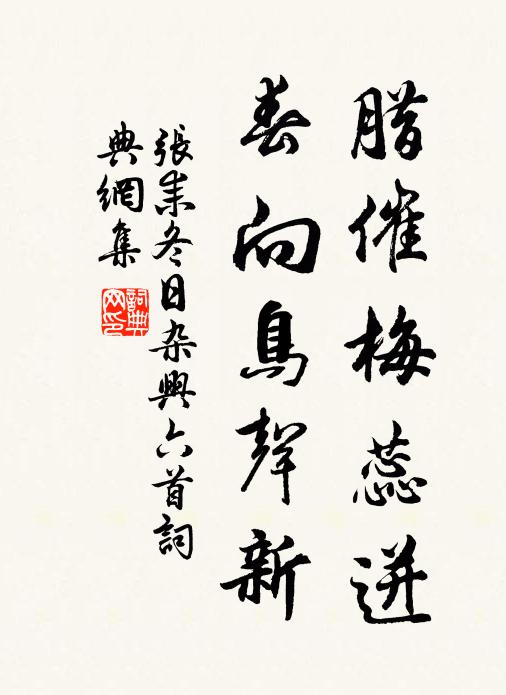 腊催梅蕊迸
春向鳥聲新
張耒冬日杂興六首詞
典網集
詞典网印